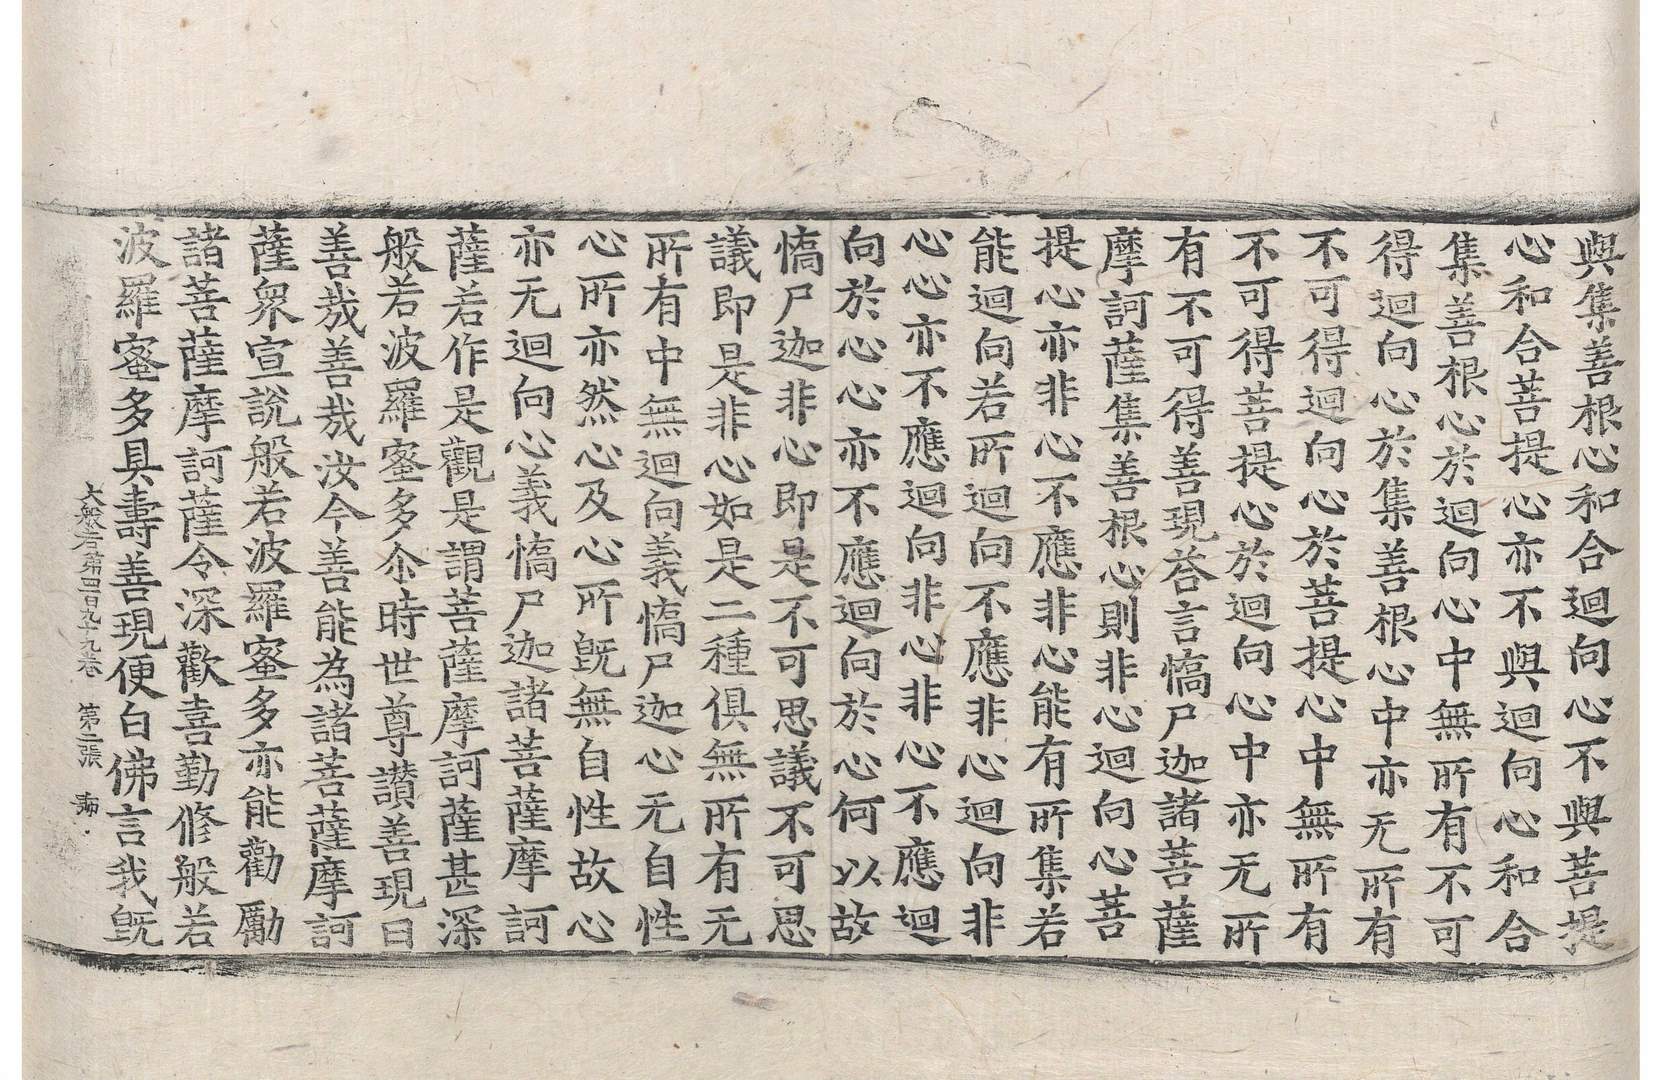 與集善根心和合迴向心不與菩提
心和合菩提心亦不與迴向心和合
集善根心於迴向心中無所有不可
得迴向心於集善根心中亦无所有
不可得迴向心於菩提心中無所有
不可得菩提心於迴向心中亦无所
有不可得善現荅言憍尸迦諸菩薩
摩訶薩集善根心則非心迴向心菩
提心亦非心不應非心能有所集若
能迴向若所迴向不應非心迴向非
心心亦不應迴向非心非心不應迴
向於心心亦不應迴向於心何以故
憍尸迦非心即是不可思議不可思
議即是非心如是二種俱無所有无
所有中無迴向義憍尸迦心无自性
心所亦然心及心所旣無自性故心
亦无迴向心義憍尸迦諸菩薩摩訶
薩若作是觀是謂菩薩摩訶薩甚深
般若波羅蜜多尒時世尊讚善現曰
善哉善哉汝今善能為諸菩薩摩訶
薩衆宣說般若波羅蜜多亦能勸勵
諸菩薩摩訶薩令深歡喜勤修般若
波羅蜜多具壽善現便白佛言我旣
大般若第四百九十九卷 第二張